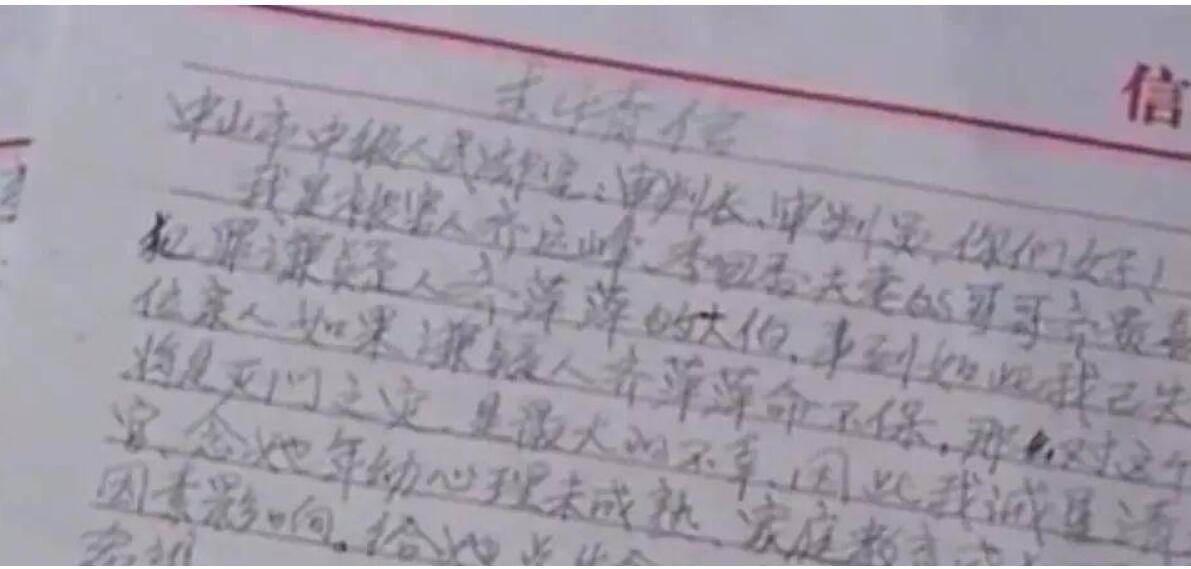 信
求情信
中山市中级人民法院:审判长、审判员,你们好!
我是被害人齐远峰、李回香夫妻的哥哥齐贵
犯罪嫌疑人齐萍萍的大伯,事到如此我已失
位亲人如果嫌疑人齐萍萍命不保,那对这个
将是灭门之灾,是最大的不幸,因此我诚恳请
官,念她年幼心理未成熟、家庭教育
因素影响。给她